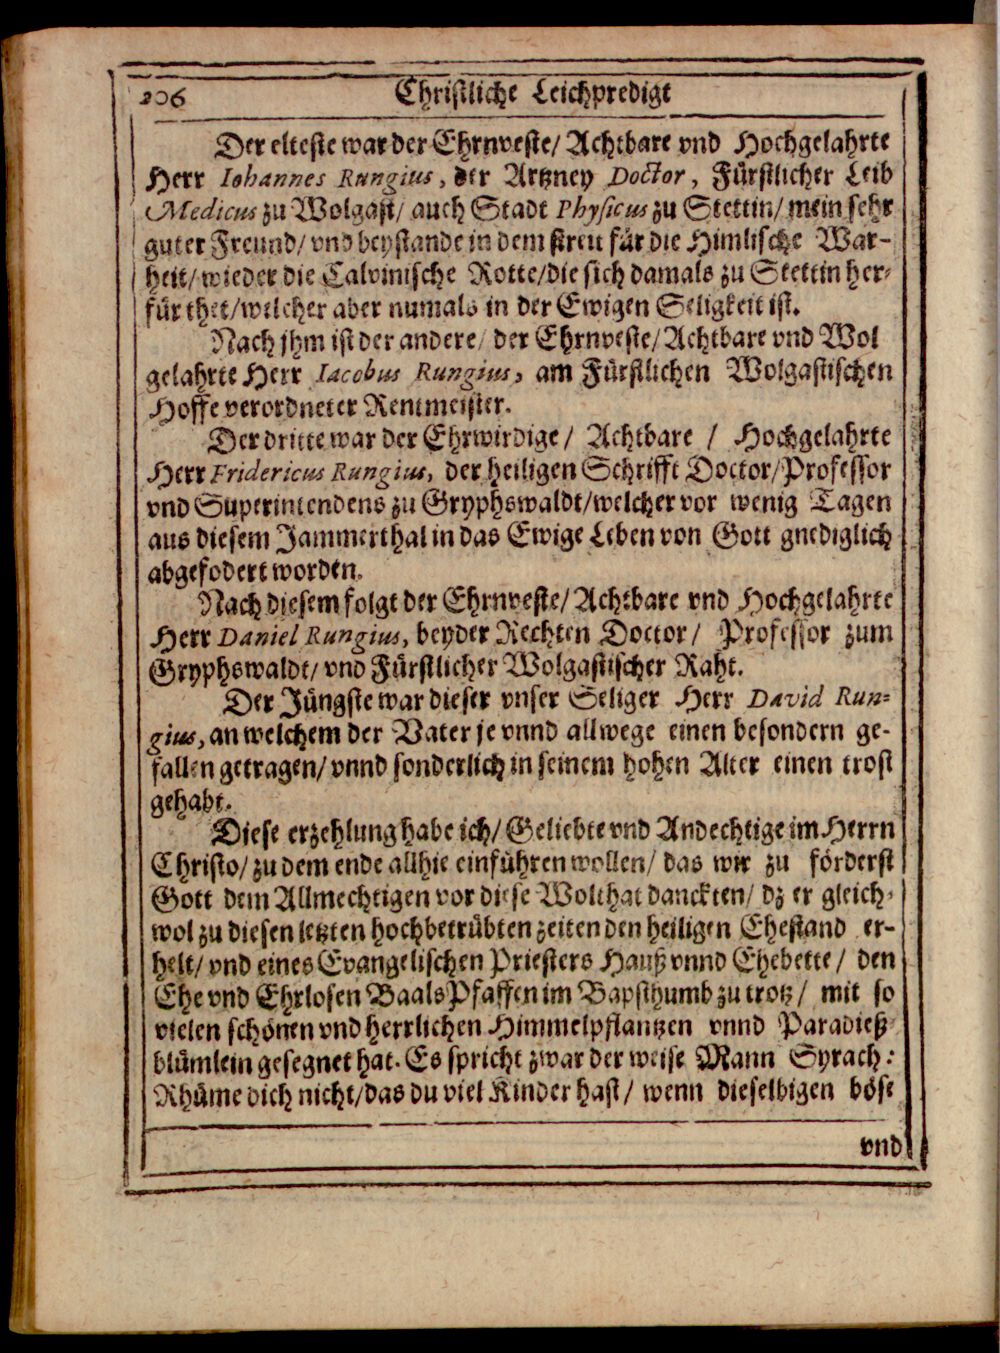 206 Christliche Leichpredigt
Der elteste war der Ehrnveste/ Achtbare vnd Hochgelahrte
Herr Iohannes Rungius, der Artzney Doctor, Fürstlicher Leib
Medicus zu Wolgast/ auch Stadt Physicus zu Stettin/ mein sehr
guter Freund/ vnd beystande in dem streit für die Himlische War-
heit/ wieder die Calvinische Rotte/die sich damals zu Stettin her-
für thet/welcher aber numals in der Ewigen Seligkeit ist.
Nach jhm ist der andere/ der Ehrnveste/Achtbare vnd Wol
gelahrte Herr Iacobus Rungius, am Fürstlichen Wolgastischen
Hoffe verordneter Rentmeister.
Der dritte war der Ehrwirdige/ Achtbare / Hochgelahrte
Herr Fridericus Rungius, der heiligen Schrifft Doctor/Professor
vnd Superintendens zu Gryphswaldt/welcher vor wenig Tagen
aus diesem Jammerthal in das Ewige Leben von Gott gnediglich
abgefodert worden.
Nach diesem folgt der Ehrnveste/Achtbare vnd Hochgelahrte
Herr Daniel Rungius, beyder Rechten Doctor/ Professor zum
Gryphswaldt/ vnd Fürstlicher Wolgastischer Raht.
Der Jüngste war dieser vnser Seliger Herr David Run-
gius, an welchem der Vater je vnnd allwege einen besondern ge-
fallen getragen/ vnnd sonderlich in seinem hohen Alter einen trost
gehabt.
Diese erzehlung habe ich/ Geliebte vnd Andechtige im Herrn
Christo/ zu dem ende allhie einführen wollen/ das wir zu förderst
Gott dem Allmechtigen vor diese Wolthat danckten/ dz er gleich-
wol zu diesen letzten hochbetrübten zeiten den heiligen Ehestand er-
helt/ vnd eines Evangelischen Priesters Hauß vnnd Ehebette/ den
Ehe vnd Ehrlosen BaalsPfaffen im Bapsthumb zu trotz/ mit so
vielen schönen vnd herrlichen Himmelpflantzen vnnd Paradieß
blümlein gesegnet hat. Es spricht zwar der weise Mann Syrach:
Rhüme dich nicht/das du viel Kinder hast/ wenn dieselbigen böse
vnd